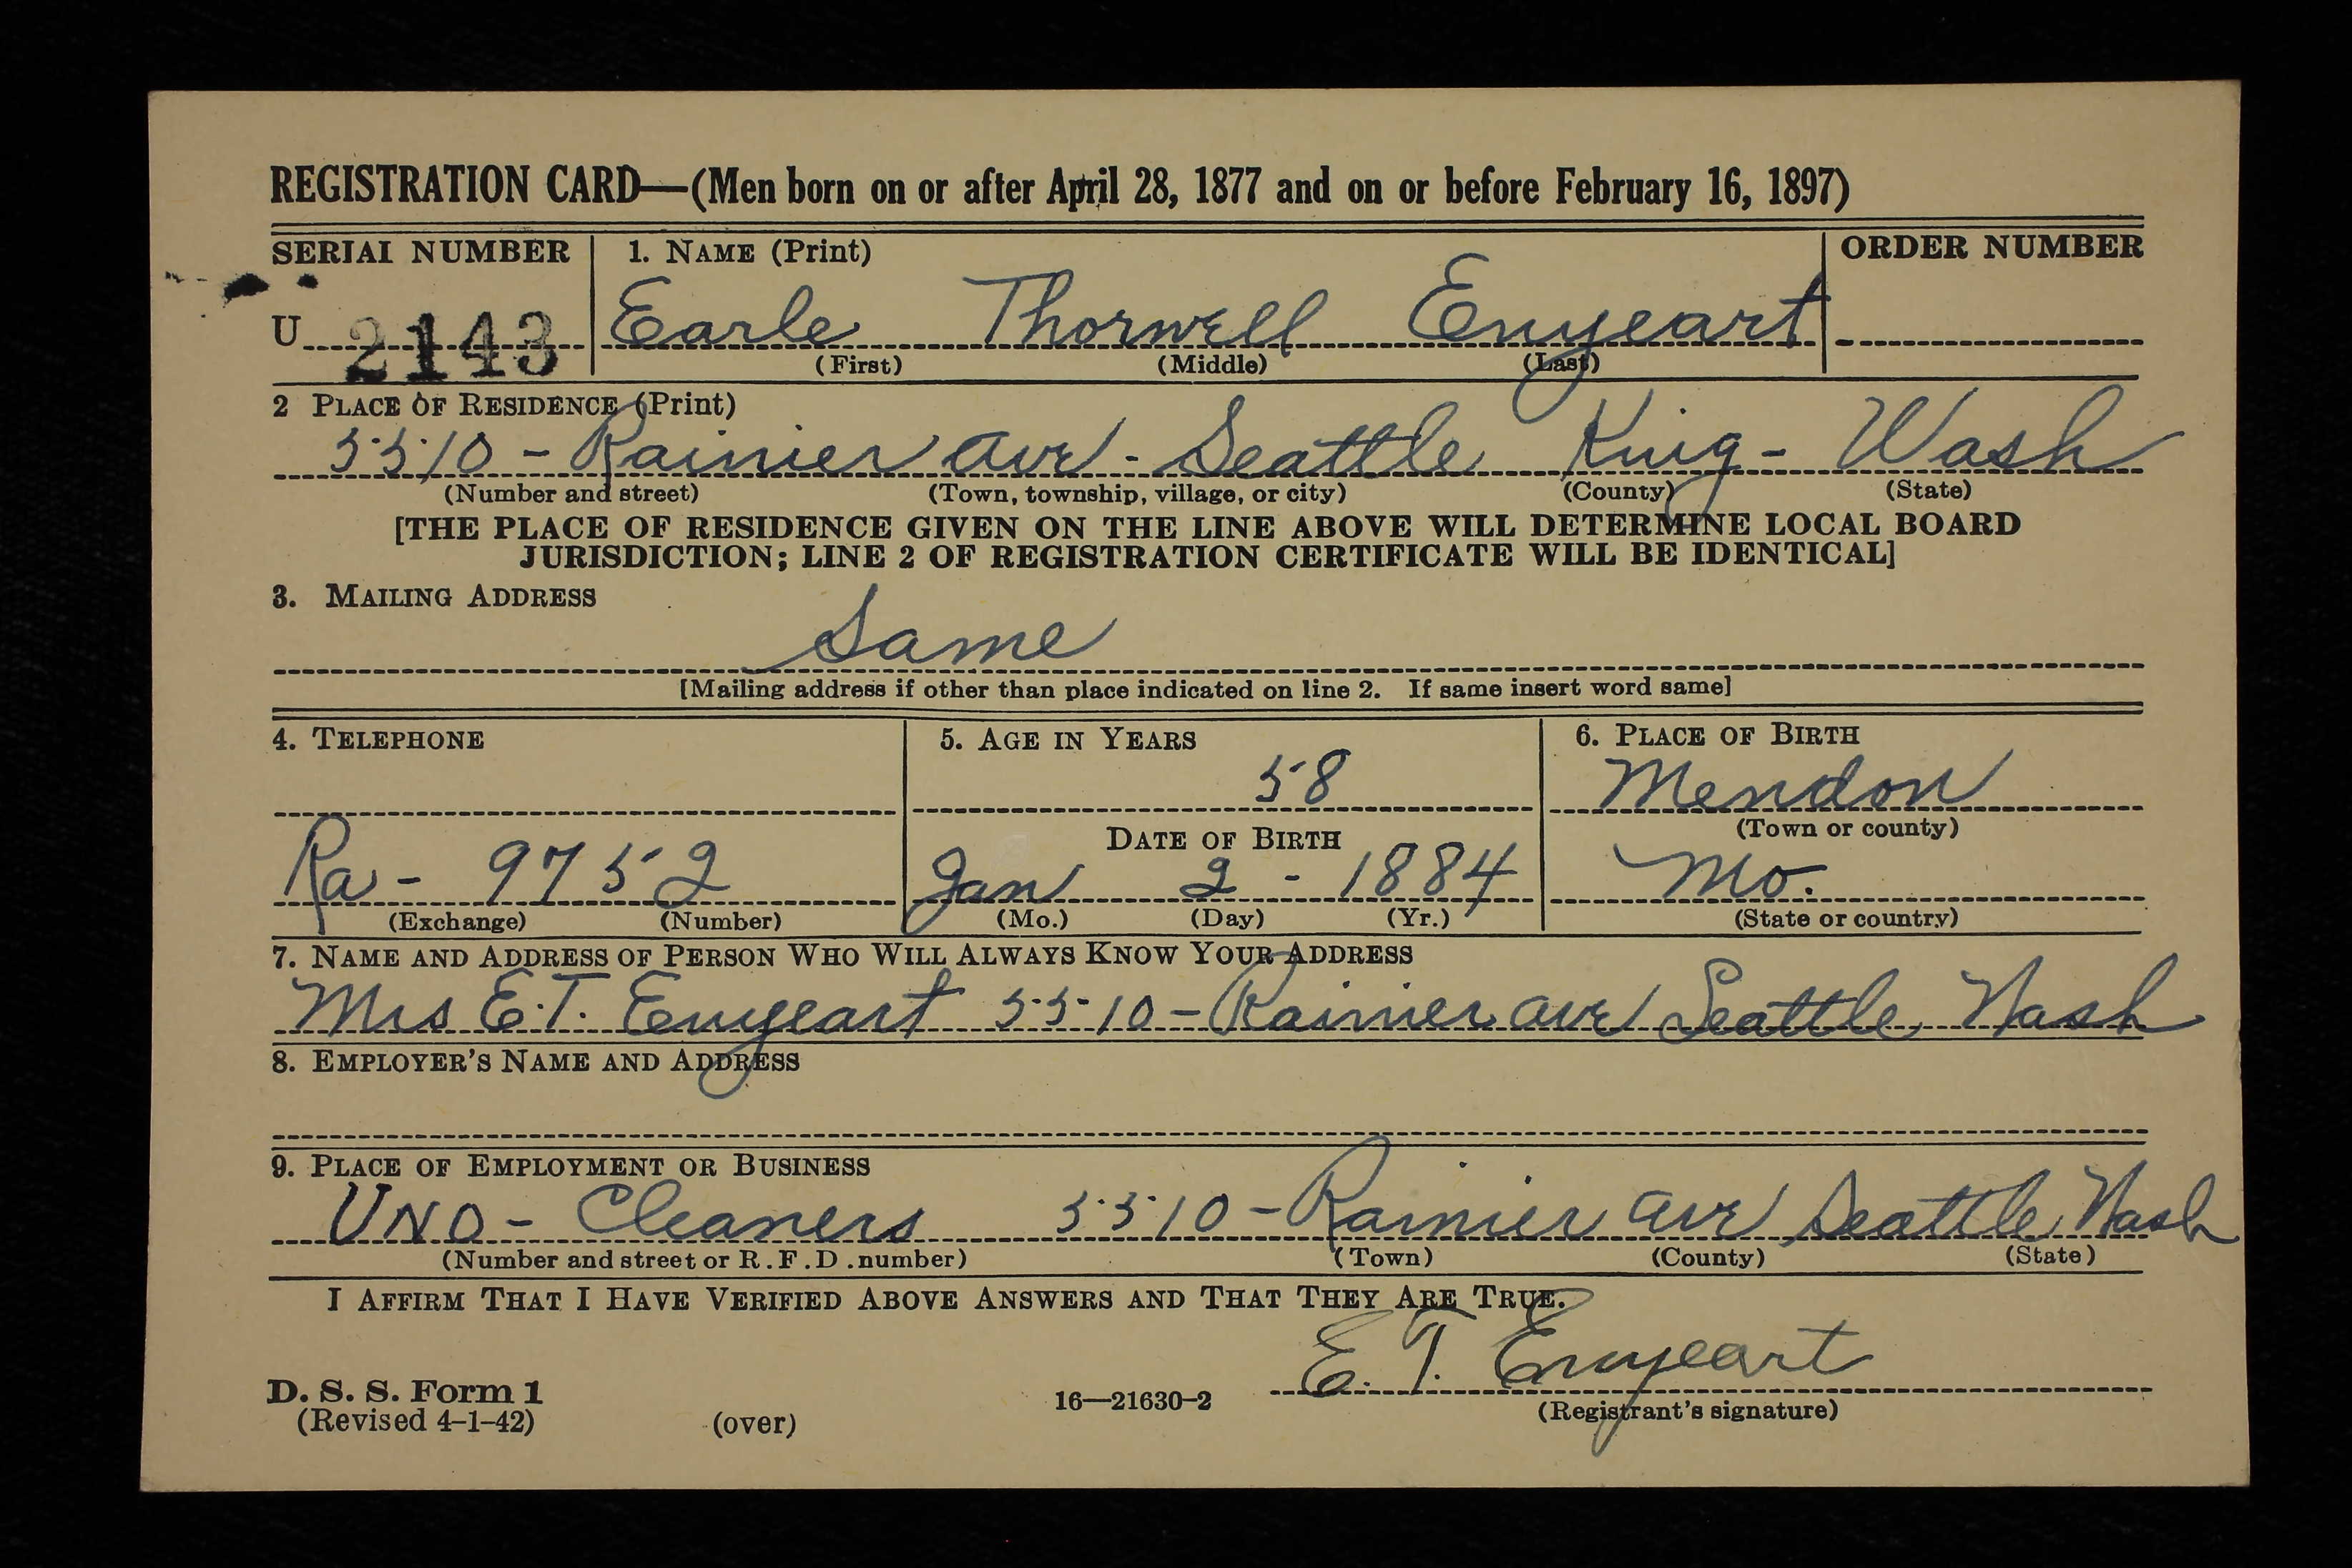 REGISTRATION CARD—(Men born on or after April 28, 1877 and on or before February 16, 1897)
SERIAL NUMBER 1. NAME (Print) ORDER NUMBER
U 2143 Earle Thorwell Enyeart
(First) (Middle) (Last)
2 PLACE OF RESIDENCE (Print)
5510 - Rainier Ave - Seattle King - Wash
(Number and street) (Town, township, village, or city) (County) (State)
[THE PLACE OF RESIDENCE GIVEN ON THE LINE ABOVE WILL DETERMINE LOCAL BOARD
JURISDICTION; LINE 2 OF REGISTRATION CERTIFICATE WILL BE IDENTICAL]
3. MAILING ADDRESS
Same
[Mailing address if other than place indicated on line 2. If same insert word same]
4. TELEPHONE 5. AGE IN YEARS 6. PLACE OF BIRTH
58 Mendon
DATE OF BIRTH (Town or county)
Ra - 9752 Jan 2 - 1884 Mo.
(Exchange) (Number) (Mo.) (Day) (Yr.) (State or country)
7. NAME AND ADDRESS OF PERSON WHO WILL ALWAYS KNOW YOUR ADDRESS
Mrs E.T. Enyeart 5510 - Rainier Ave Seattle Wash
8. EMPLOYER'S NAME AND ADDRESS
9. PLACE OF EMPLOYMENT OR BUSINESS
UNO - Cleaners 5510 - Rainier Ave Seattle Wash
(Number and street or R. F. D. number) (Town) (County) (State)
I AFFIRM THAT I HAVE VERIFIED ABOVE ANSWERS AND THAT THEY ARE TRUE.
E. T. Enyeart
D. S. S. Form 1
(Revised 4-1-42) (over) 16—21630-2 (Registrant's signature)